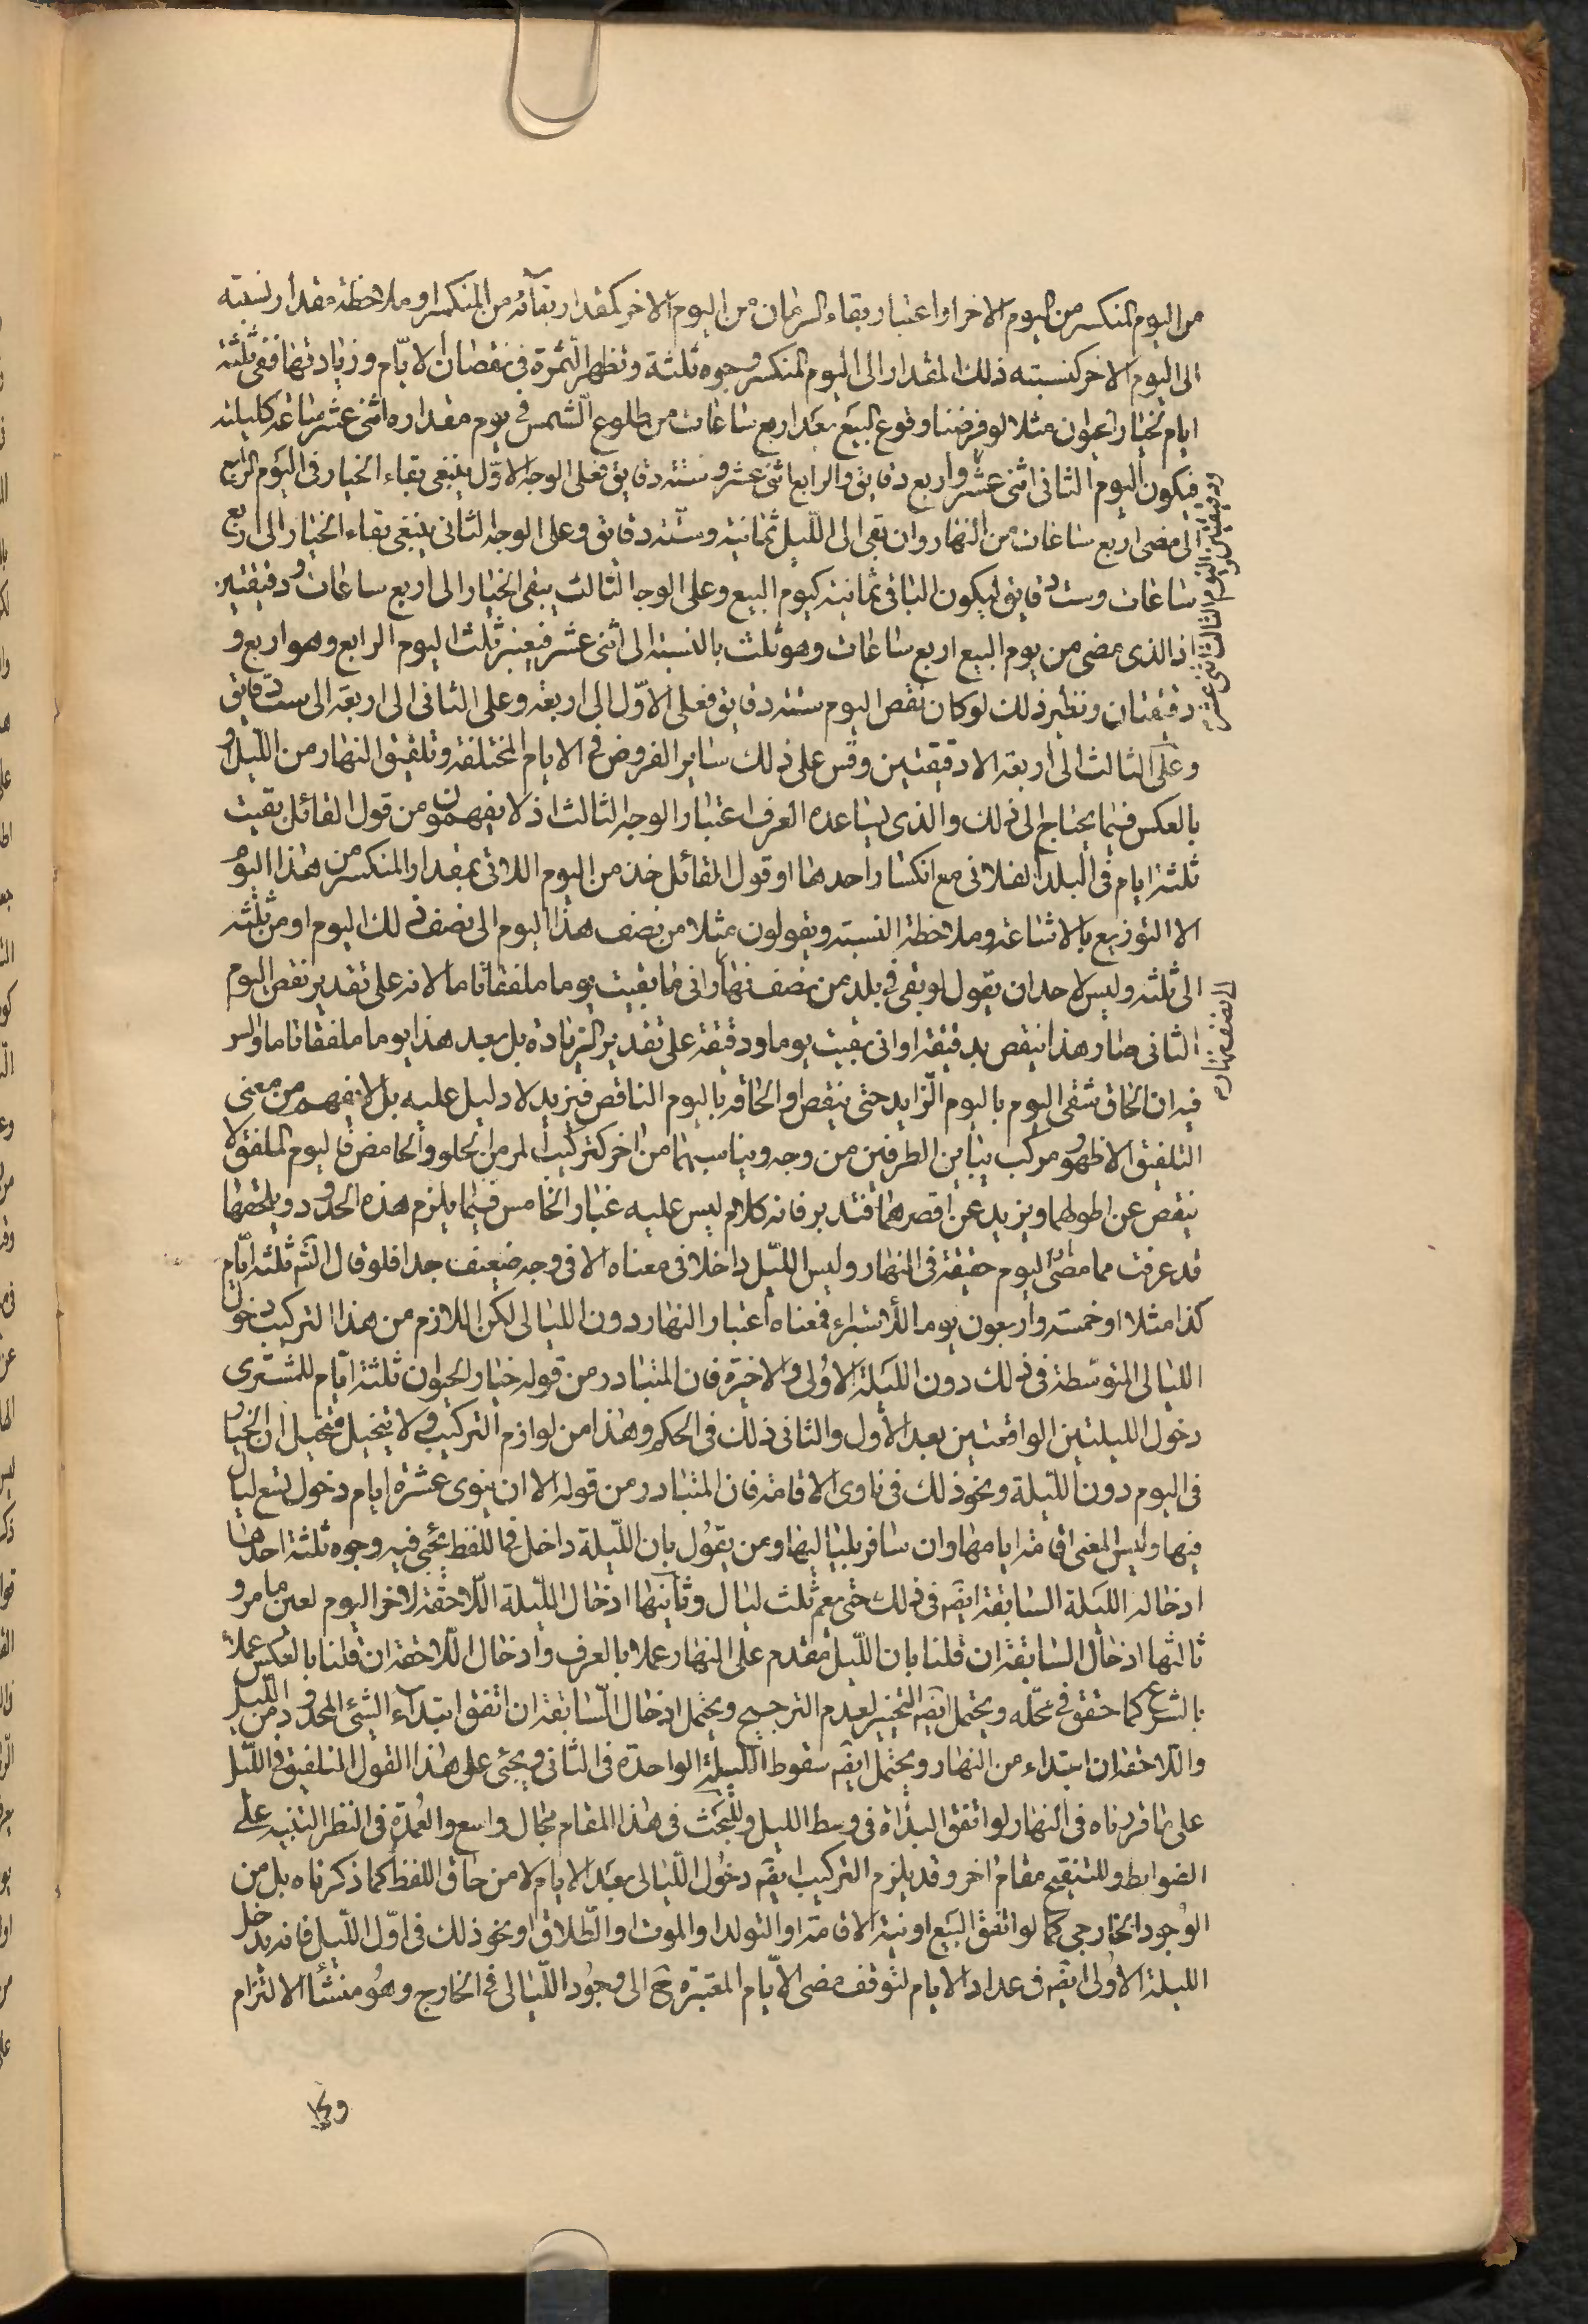 من اليوم المنكسر من اليوم الاخر او اعتبار بقاء الزمان من اليوم الاخر كمقدار بقائه من المنكسر او ملاحظة مقدار نسبته
الى اليوم الاخر كنسبته ذلك المقدار الى اليوم المنكسر وجوه ثلثة وتظهر الثمرة فى نقصان الايام وزيادتها ففى ثلثة
ايام خيار الحيوان مثلا لو فرضنا وقوع البيع بعد اربع ساعات من طلوع الشمس فى يوم مقداره اثنى عشر ساعة كليلته
فيكون اليوم الثانى اثنى عشر واربع دقايق والرابع اثنى عشر وستة دقايق فعلى الوجه الاول ينبغى بقاء الخيار فى اليوم الرابع
الى مضى اربع ساعات من النهار وان بقى الى الليل ثمانية وستة دقايق وعلى الوجه الثانى ينبغى بقاء الخيار الى اربع
ساعات وست دقايق ليكون الباقى ثمانية كيوم البيع وعلى الوجه الثالث يبقى الخيار الى اربع ساعات ودقيقتين
اذ الذى مضى من يوم البيع اربع ساعات وهو ثلث بالنسبة الى اثنى عشر فيعتبر ثلث اليوم الرابع وهو اربع و
دقيقتان ونظير ذلك لو كان نقص اليوم ستة دقايق فعلى الاول الى اربعة وعلى الثانى الى اربعة الى ست دقايق
وعلى الثالث الى اربعة الا دقيقتين وقس على ذلك ساير الفروض فى الايام المختلفة وتلفيق النهار من الليل و
بالعكس فيما يحتاج الى ذلك والذى يساعده العرف اعتبار الوجه الثالث اذ لا يفهمون من قول القائل بقيت
ثلثة ايام فى البلد الفلانى مع انكسار احدها او قول القائل خذ من اليوم الاتى بمقدار المنكسر من هذا اليوم
الا التوزيع بالاشاعة وملاحظة النسبة ويقولون مثلا من نصف هذا اليوم الى نصف ذلك اليوم او من ثلثه
الى ثلثه وليس لاحد ان يقول لو بقى فى بلد من نصف نهار انى ما بقيت يوما ملفقا تاما لانه على تقدير نقص اليوم
الثانى صار هذا ينقص بدقيقة او انى بقيت يوما ودقيقة على تقدير الزيادة بل يعد هذا يوما ملفقا تاما والسر
فيه ان الحاق شقى اليوم باليوم الزايد حتى ينقص او الحاقه باليوم الناقص فيزيد لا دليل عليه بل لا يفهم من معنى
التلفيق الا ظهور مركب يباين الطرفين من وجه ويناسبهما من اخر كتركيب المر من الحلو والحامض فاليوم الملفق لا
ينقص عن اطولهما ويزيد عن اقصرهما فتدبر فانه كلام ليس عليه غبار الخامس فيما يلزم هذه الحدود ويلحقها
قد عرفت مما مضى اليوم حقيقة فى النهار وليس الليل داخلا فى معناه الا فى وجه ضعيف جدا فلو قال الش ثلثة ايام
كذا مثلا او خمسة واربعون يوما للاستبراء فمعناه اعتبار النهار دون الليالى لكن اللازم من هذا التركيب دخول
الليالى المتوسطة فى ذلك دون الليلة الاولى والاخيرة فان المتبادر من قوله خيار الحيوان ثلثة ايام للمشترى
دخول الليلتين الواقعتين بعد الاول والثانى ذلك فى الحكم وهذا من لوازم التركيب ولا يتخيل متخيل ان الخيار
فى اليوم دون الليلة ونحو ذلك فى ناوى الاقامة فان المتبادر من قوله الا ان ينوى عشرة ايام دخول تسع ليال
فيها وليس المعنى اقامة ايامها وان سافر بلياليها ومن يقول بان الليلة داخل فى اللفظ يجئ فيه وجوه ثلثة احدها
ادخاله الليلة السابقة ايضه فى ذلك حتى يعم ثلث ليال وثانيها ادخال الليلة اللاحقة لاخر اليوم لعين ما مر و
ثالثها ادخال السابقة ان قلنا بان الليل مقدم على النهار عملا بالعرف وادخال اللاحقة ان قلنا بالعكس عملا
بالشرع كما حقق فى محله ويحتمل ايضه التخيير لعدم الترجيح ويحتمل ادخال السابقة ان اتفق ابتداء الشئ المحدود من الليل
واللاحقة ان ابتداء من النهار ويحتمل ايضه سقوط الليلة الواحدة فى الثانى ويجئ على هذا القول التلفيق فى الليل
على ما قررناه فى النهار لو اتفق البداة فى وسط الليل وللبحث فى هذا المقام مجال واسع والعمدة فى النظر التنبيه على
الضوابط وللتنقيح مقام اخر وقد يلزم التركيب ايضه دخول الليالى بعد الايام لا من حاق اللفظ كما ذكرناه بل من
الوجود الخارجى كما لو اتفق البيع او نية الاقامة او التولد او الموت او الطلاق او نحو ذلك فى اول الليل فانه يدخل
الليلة الاولى ايضه فى عداد الايام لتوقف مضى الايام المعتبرة ح الى وجود الليالى فى الخارج وهو منشأ الالتزام
ودقيقتين واليوم الثالث اثنى عشر
الى نصف نهاره